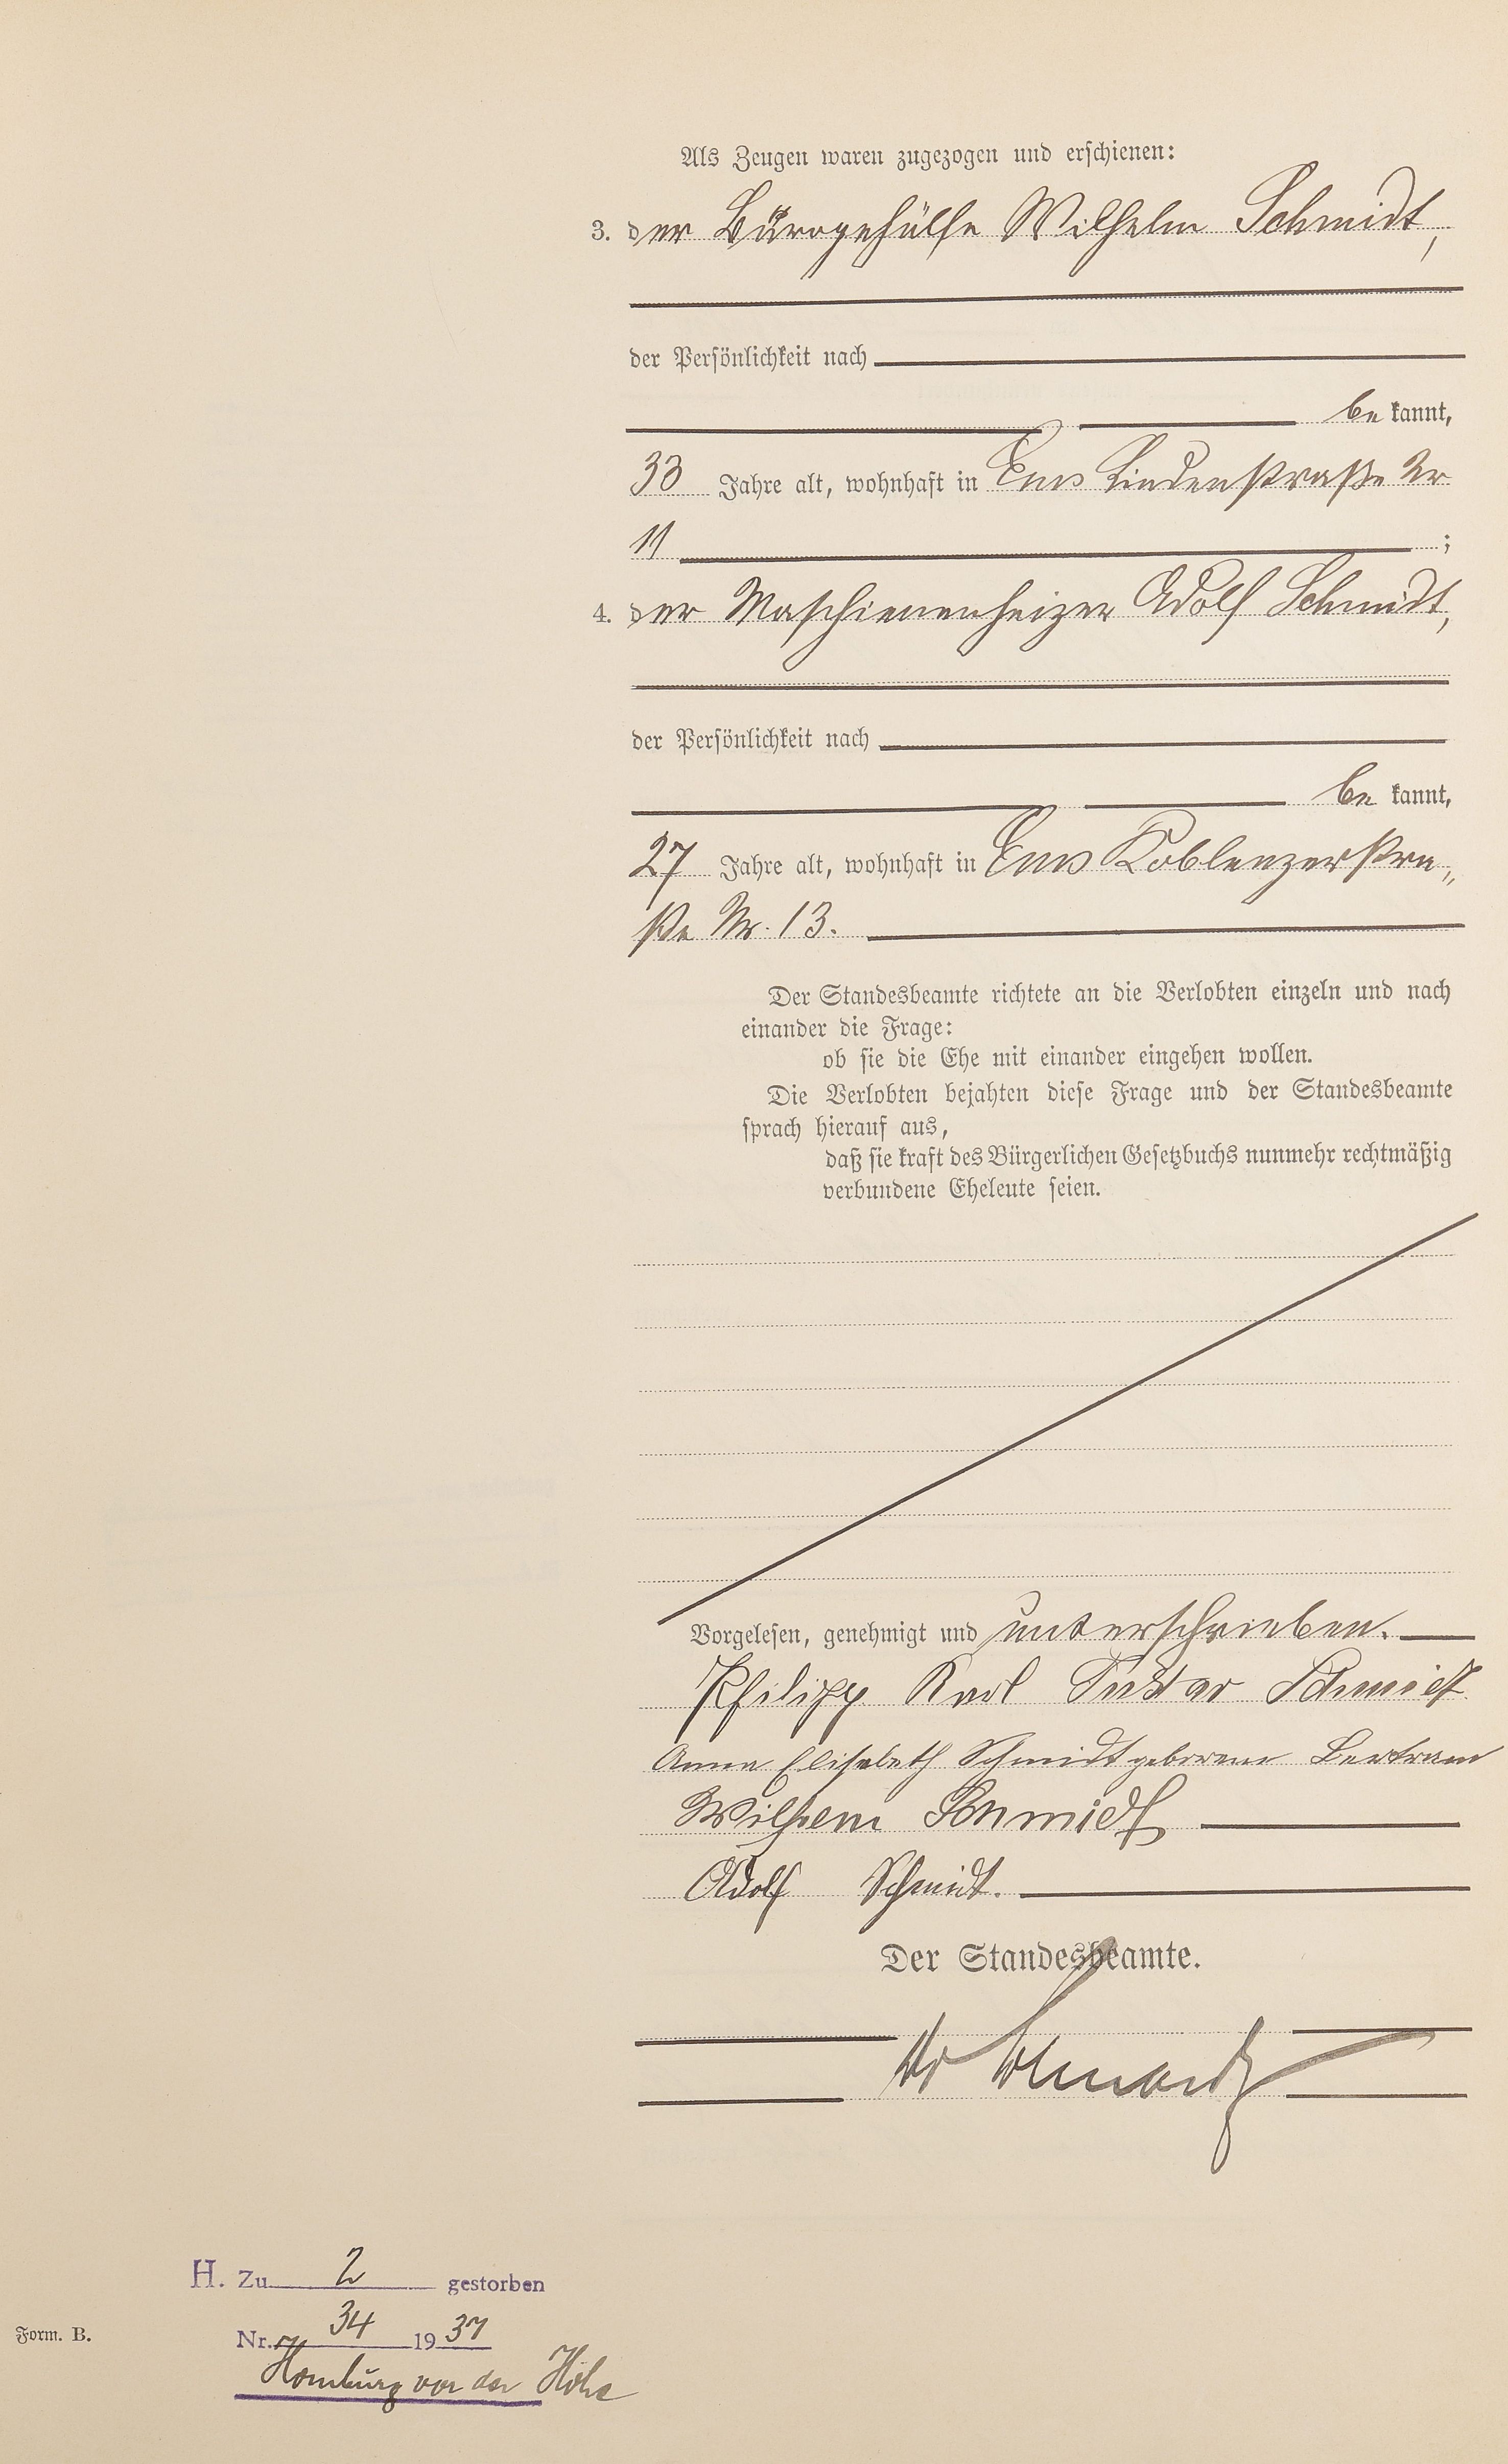 Als Zeugen waren zugezogen und erschienen:
3. der Bürogehülfe Wilhelm Schmidt,
der Persönlichkeit nach
be kannt,
33 Jahre alt, wohnhaft in Ems Lindenstraße Nr
11 ;
4. der Maschienenheizer Adolf Schmidt,
der Persönlichkeit nach
be kannt,
27 Jahre alt, wohnhaft in Ems Koblenzerstra„
ße Nr. 13.
Der Standesbeamte richtete an die Verlobten einzeln und nach
einander die Frage:
ob sie die Ehe mit einander eingehen wollen.
Die Verlobten bejahten diese Frage und der Standesbeamte
sprach hierauf aus,
daß sie kraft des Bürgerlichen Gesetzbuchs nunmehr rechtmäßig
verbundene Eheleute seien.
Vorgelesen, genehmigt und unterschrieben.
Philipp Karl Gustav Schmidt
Anna Elisabeth Schmidt geborene Bertram
Wilhelm Schmidt
Adolf Schmidt.
Der Standesbeamte.
H. Zu 2 gestorben
Nr. 34 1937
Homburg vor der Höhe
Form. B.